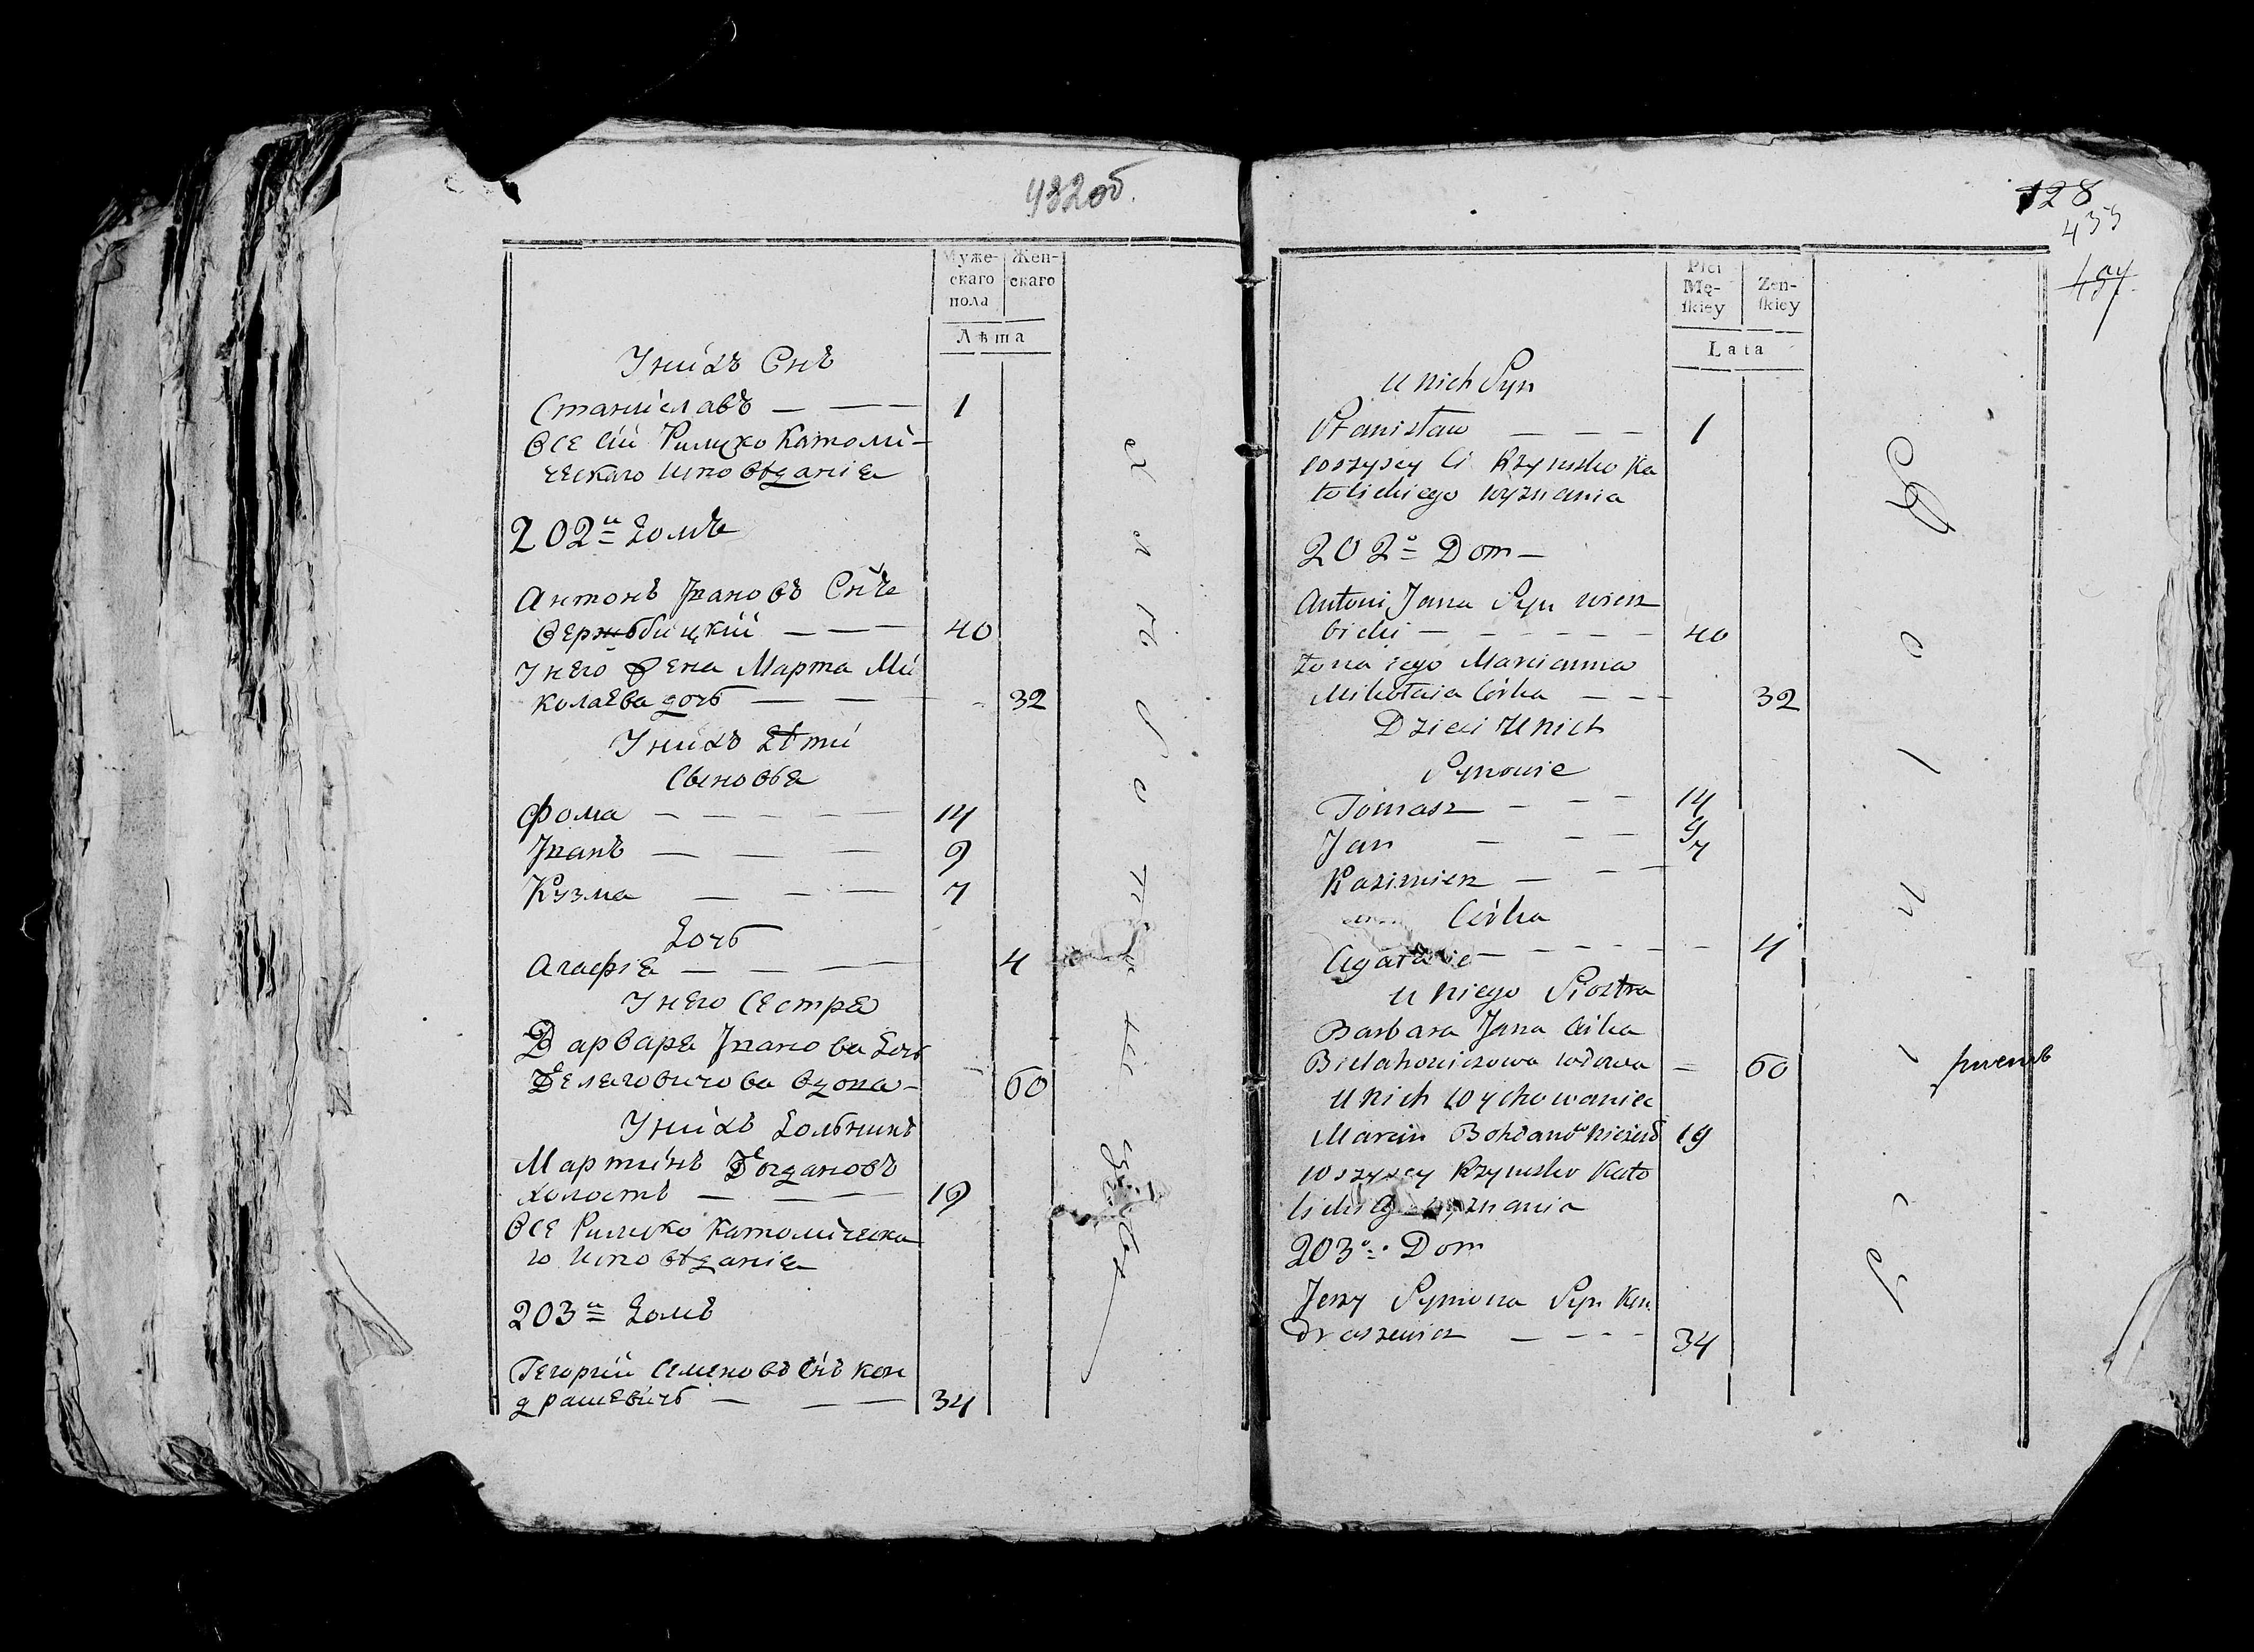 432 об.
Муже- Жен-
скаго скаго
пола
Лѣта
У нихъ Снъ
Станиславъ — — — 1
Все сіи Римско Католи-
ческаго исповѣданія
202й Домъ
Антонъ Ивановъ Снъ
Вержбицкій — — — 40
У него жена Марта Ми
колаева дочь — — — 32
У нихъ дѣти
Сыновья
Фома — — — — — 14
Иванъ — — — 9
Кузма — — — 7
Дочь
Агафія — — — 4
У него Сестра
Варвара Иванова Дочь
Белаговичова вдова — 60
У нихъ
Мартинъ Богдановъ
холостъ — — — 19
Все Римско Католическа
го исповѣданія
203й Домъ
Георгій Семеновъ Снъ Кон
драшевичъ — — — 34
128
433
Płci Zen-
Mę- skiey
skiey
Lata
U nich Syn
Stanisław — — — 1
wszyscy Ci Rzymsko Ka
tolickiego wyznania
202o Dom —
Antoni Jana Syn Wierz
bicki — — — — — — 40
żona iego Marianna
Mikołaia Córka — — — 32
Dzieci U nich
Synowie
Tomasz — — — 14
Jan — — — 9
Kazimierz — — — 7
Córka
Agata — — — — — — 4
U niego Siostra
Barbara Jana Córka
wdowa — 60
U nich wychowaniec
Marcin 19
wszyscy Rzymsko Kato
lickieg wyznania
203o Dom
Jerzy Symona Syn Kon
draszewicz — — — — 34